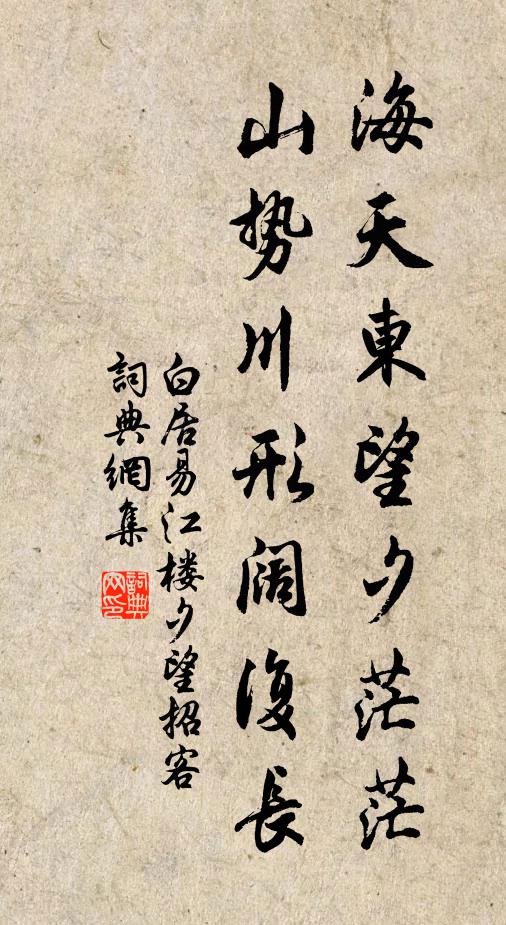 海天東望夕茫茫
山势川形阔復長
白居易江楼夕望招客
詞典網集
詞典網印